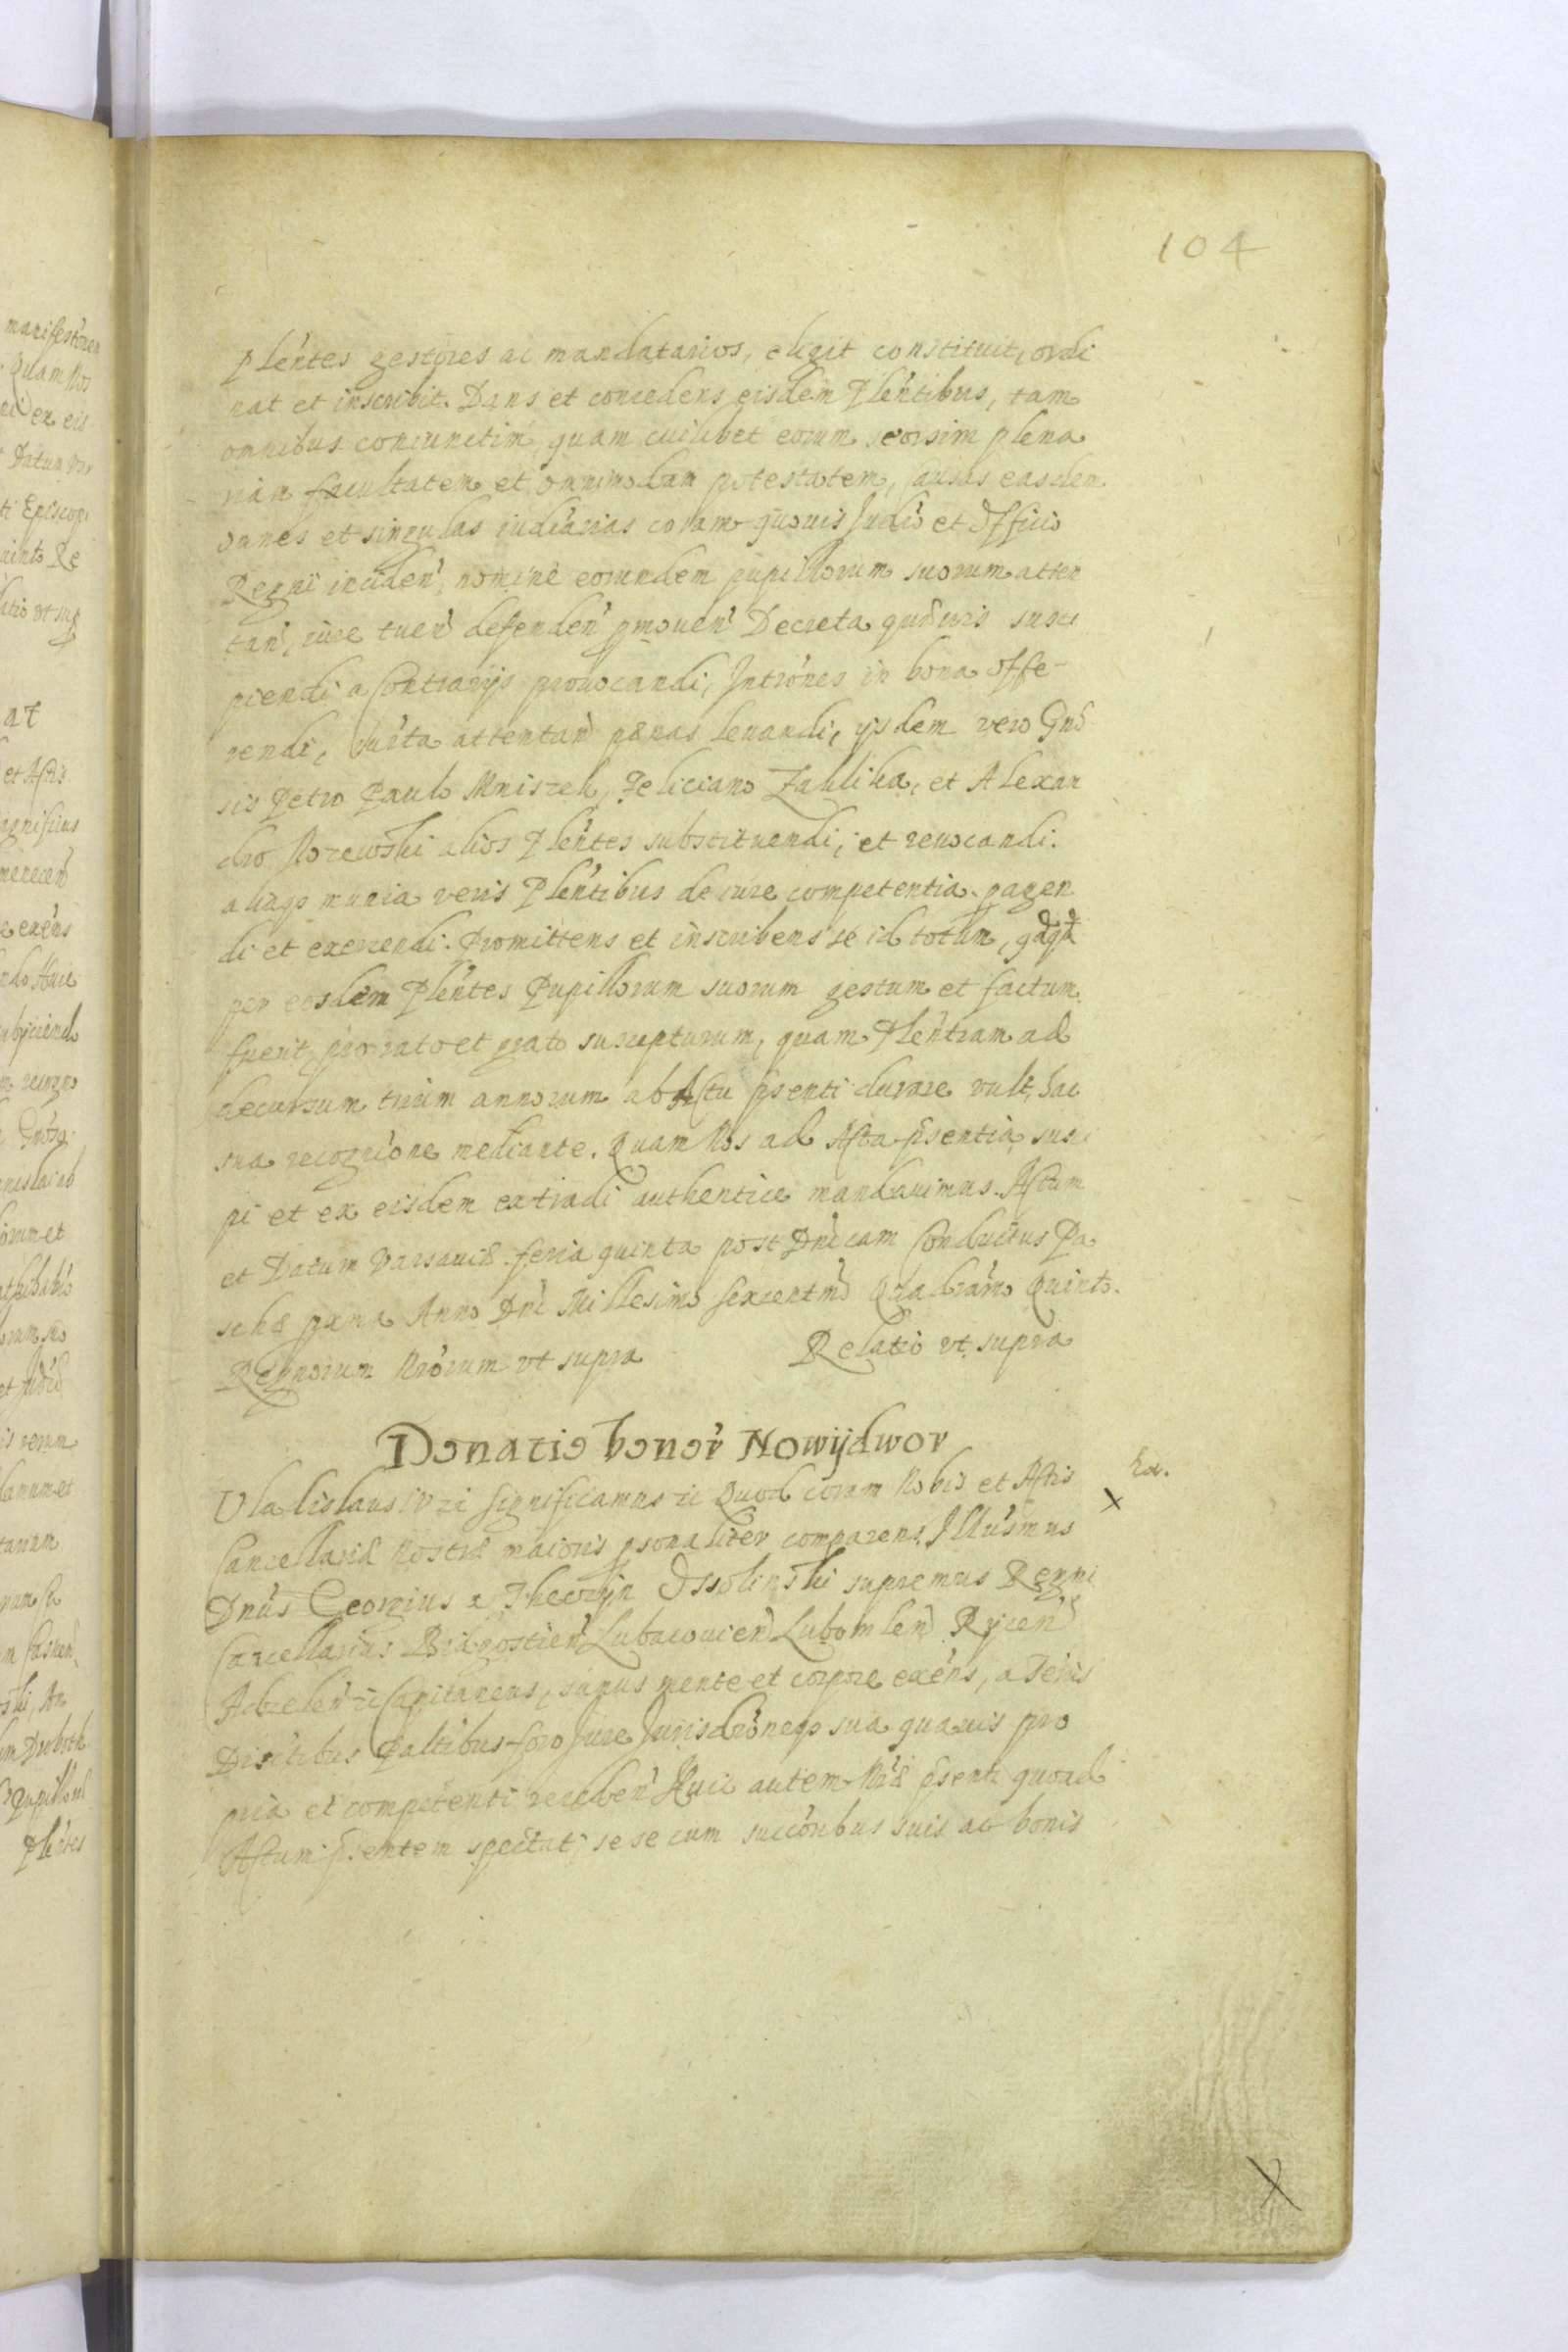 104
Plentes gestores ac mandatarios, eligit constituit, ordi
nat et inscribit. Dans et concedens eisdem Plentibus, tam
omnibus coniunctim, quam cuilibet eorum seorsim plena
riam facultatem et omnimodam potestatem, causas easdem
omnes et singulas iudiciarias coram quouis Judio et Officio
Regni inciden, nomine eorundem pupillorum suorum atten
tan, iure tuen defenden pmouen Decreta quaeuis susci
piendi a Contrarijs prouocandi, Intrones in bona offe-
rendi, attentan paenas leuandi, ijsdem vero Gnō
sis Petro Paulo Mniszek, Feliciano Zaklika, et Alexan
dro alios Plentes substituendi, et reuocandi.
aliaqs munia veris Plentibus de iure competentia pagen
di et exercendi. Promittens et inscribens se id totum, qdqd
per eosdem Plentes Pupillorum suorum gestum et factum
fuerit, pro rato et grato suscepturum, quam Plentiam ad
decursum trium annorum ab Actu psenti durare vult, hac
sua recognione mediante. Quam Nos ad Acta psentia susci
pi et ex eisdem extradi authentice mandauimus. Actum
et Datum Varsauiae feria quinta post Dnicam Conductus Pa
schae pxma Anno Dni Millesimo sexcentmo Quadragmo Quinto.
Regnorum Nrorum vt supra Relatio vt supra
Donatio bonor Nowijdwor
Vladislaus IV zc Significamus zc Quod coram Nobis et Actis
Cancellariae Nostrae maioris psonaliter comparens Illusmus
Dnus Georgius a Theczyn Ossolinski supremus Regni
Cancellarius Bidgostien Lubaczouien Lubomlen Rycen
Adzelen zc Capitaneus, sanus mente et corpore exens, a Teris
Disctibus Paltibus foro Jure Jurisdioneqs sua quauis pro
pria et competenti receden Huic autem Nrae psenti quoad
Actum psentem spectat, se se cum succoribus suis ac bonis